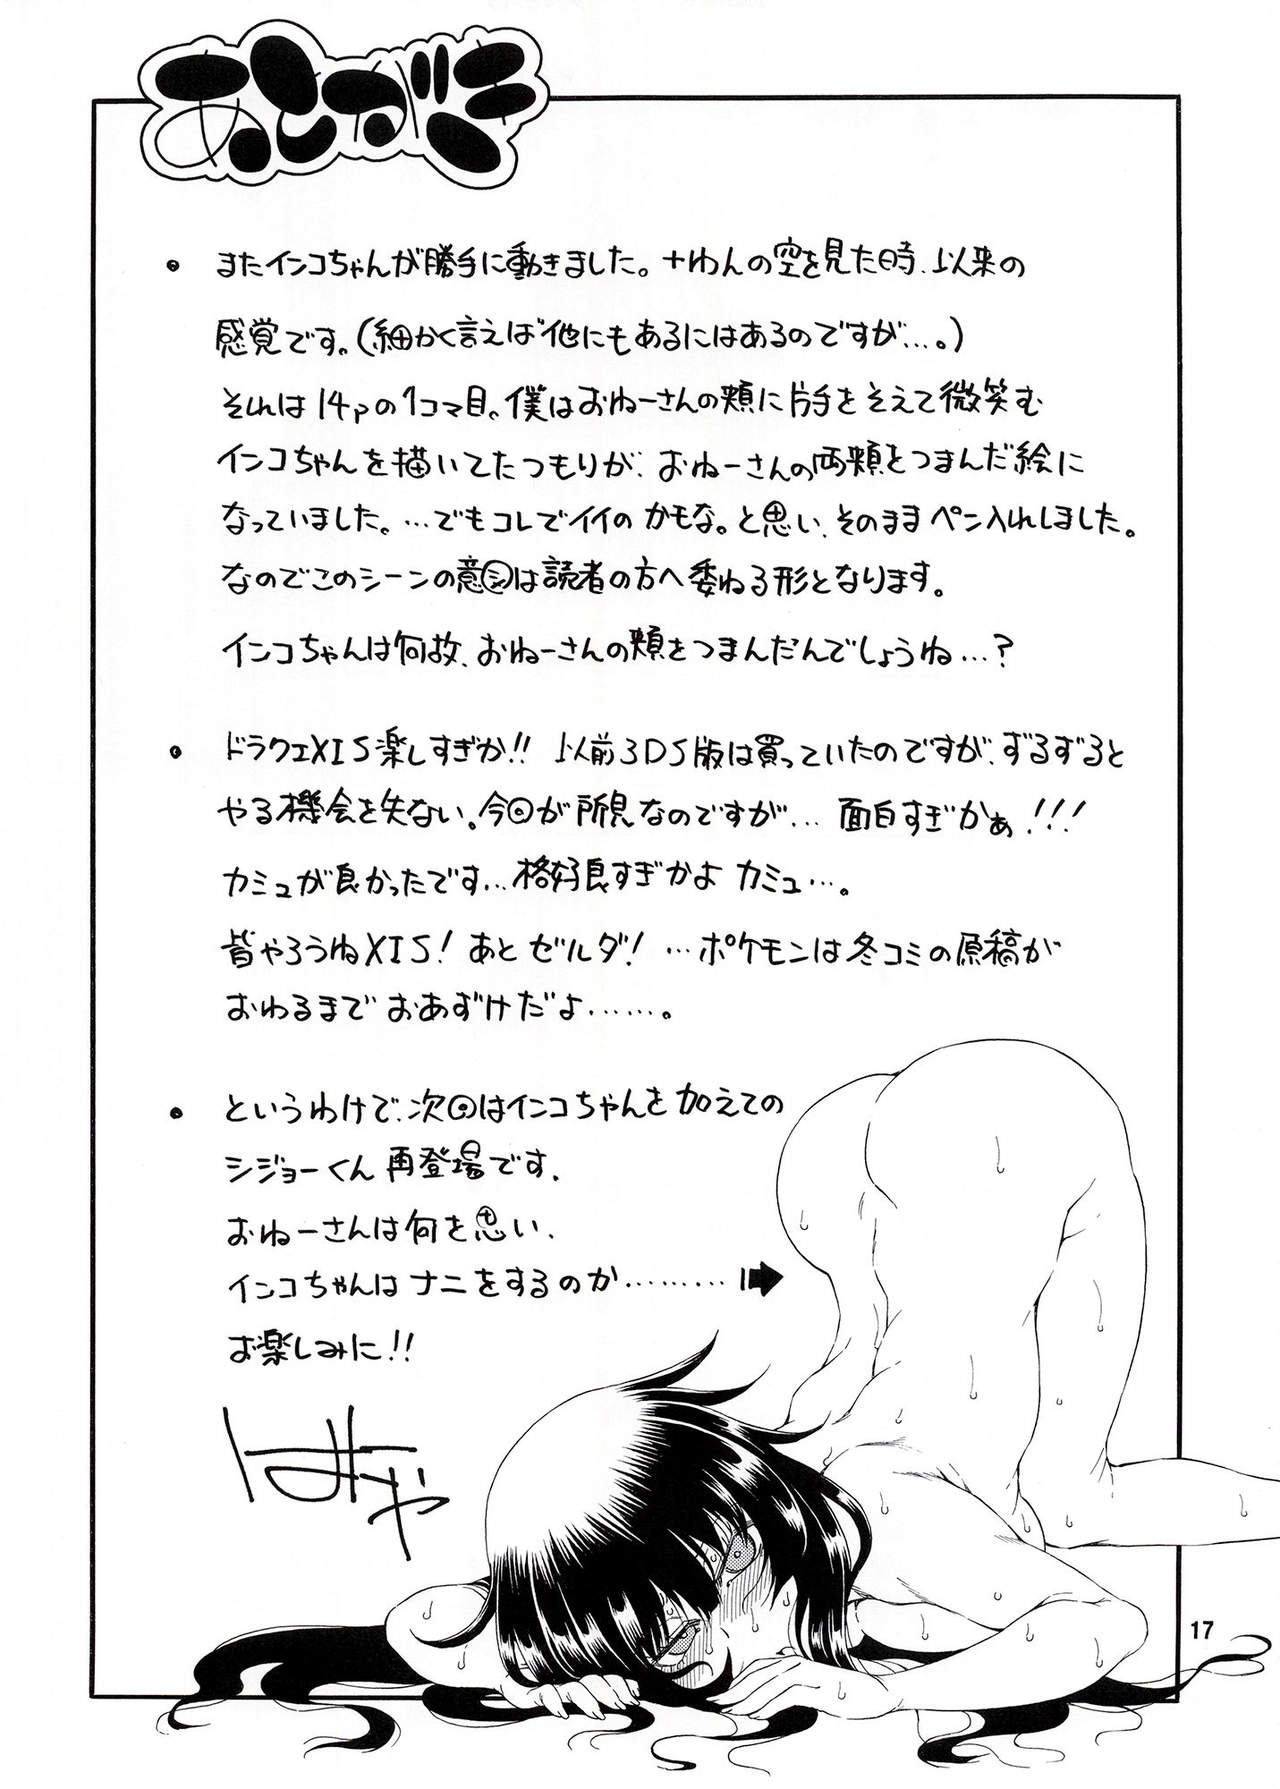 あとがき
・またインコちゃんが勝手に動きました。十わんの空を見た時、以来の
感覚です。(細かく言えば他にもあるにはあるのですが…。)
それは14pの1コマ目。僕はおねーさんの頬に片手をそえて微笑む
インコちゃんを描いてたつもりが、おねーさんの両頬をつまんだ絵に
なっていました。…でもコレでイイのかもな。と思い、そのままペン入れしました。
なのでこのシーンの意図は読者の方へ委ねる形となります。
インコちゃんは何故、おねーさんの頬をつまんだんでしょうね…?
・ドラクエXIS楽しすぎか!! 以前3DS版は買っていたのですが、ずるずると
やる機会を失ない。今回が所見なのですが… 面白すぎかぁ!!!
カミュが良かったです…格好良すぎかよ カミュ…。
皆やろうねXIS! あとゼルダ! …ポケモンは冬コミの原稿が
おわるまで おあずけだよ……。
・というわけで、次回はインコちゃんを加えての
シジョーくん再登場です。
おねーさんは何を思い、
インコちゃんはナニをするのか………
お楽しみに!!
17